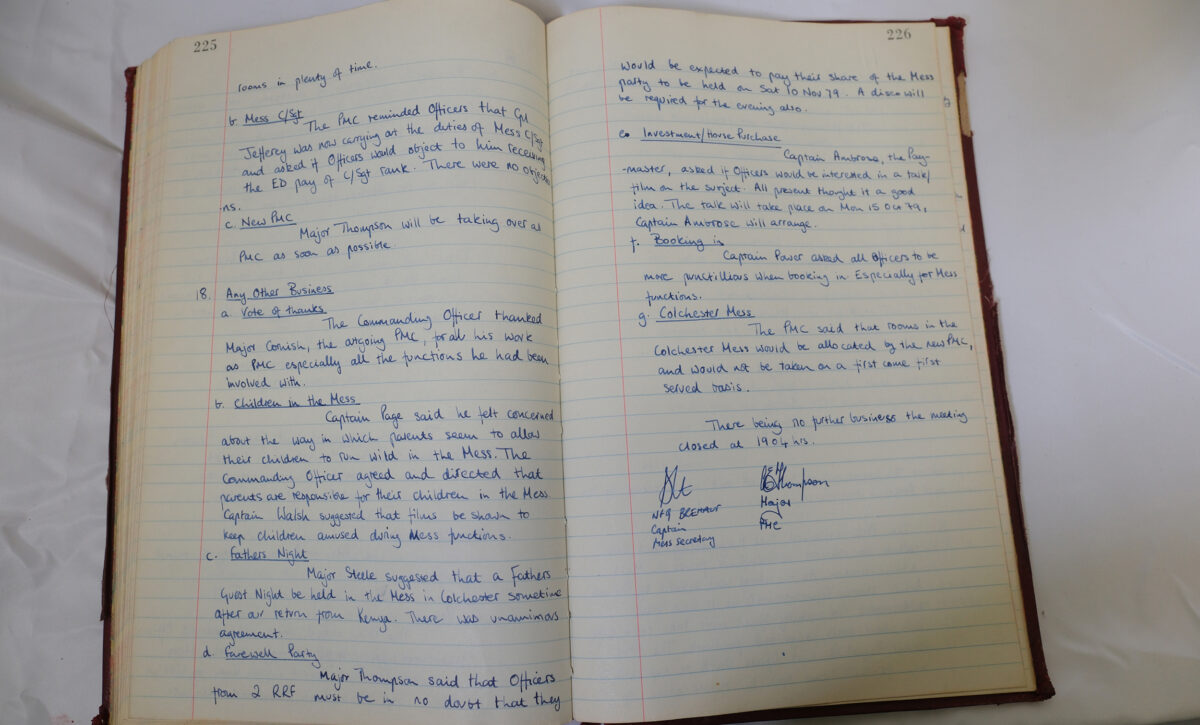 225
rooms in plenty of time.
b. Mess C/Sgt
The PMC reminded Officers that Cpl
Jefferey was now carrying out the duties of Mess C/Sgt
and asked if Officers would object to him receiving
the ED pay of C/Sgt rank. There were no objectio
ns.
c. New PMC
Major Thompson will be taking over as
PMC as soon as possible.
18. Any Other Business
a. Vote of thanks
The Commanding Officer thanked
Major Cornish, the outgoing PMC, for all his work
as PMC especially all the functions he had been
involved with.
b. Children in the Mess
Captain Page said he felt concerned
about the way in which parents seem to allow
their children to run wild in the Mess. The
Commanding Officer agreed and directed that
parents are responsible for their children in the Mess
Captain Walsh suggested that films be shown to
keep children amused during Mess functions.
c. Fathers Night
Major Steele suggested that a Fathers
Guest Night be held in the Mess in Colchester sometime
after our return from Kenya. There was unanimous
agreement.
d. Farewell Party
Major Thompson said that Officers
from 2 RRF must be in no doubt that they
226
would be expected to pay their share of the Mess
party to be held on Sat 10 Nov 79. A disco will
be required for the evening also.
e. Investment/House Purchase
Captain Ambrose, the Pay-
-master, asked if Officers would be interested in a talk/
film on the subject. All present thought it a good
idea. The talk will take place on Mon 15 Oct 79,
Captain Ambrose will arrange.
f. Booking in
Captain Power asked all Officers to be
more punctillious when booking in. Especially for Mess
functions.
g. Colchester Mess
The PMC said that rooms in the
Colchester Mess would be allocated by the new PMC,
and would not be taken on a first come first
served basis.
There being no further business the meeting
closed at 1904 hrs.
Thompson
Captain
Mess Secretary
Major
PMC